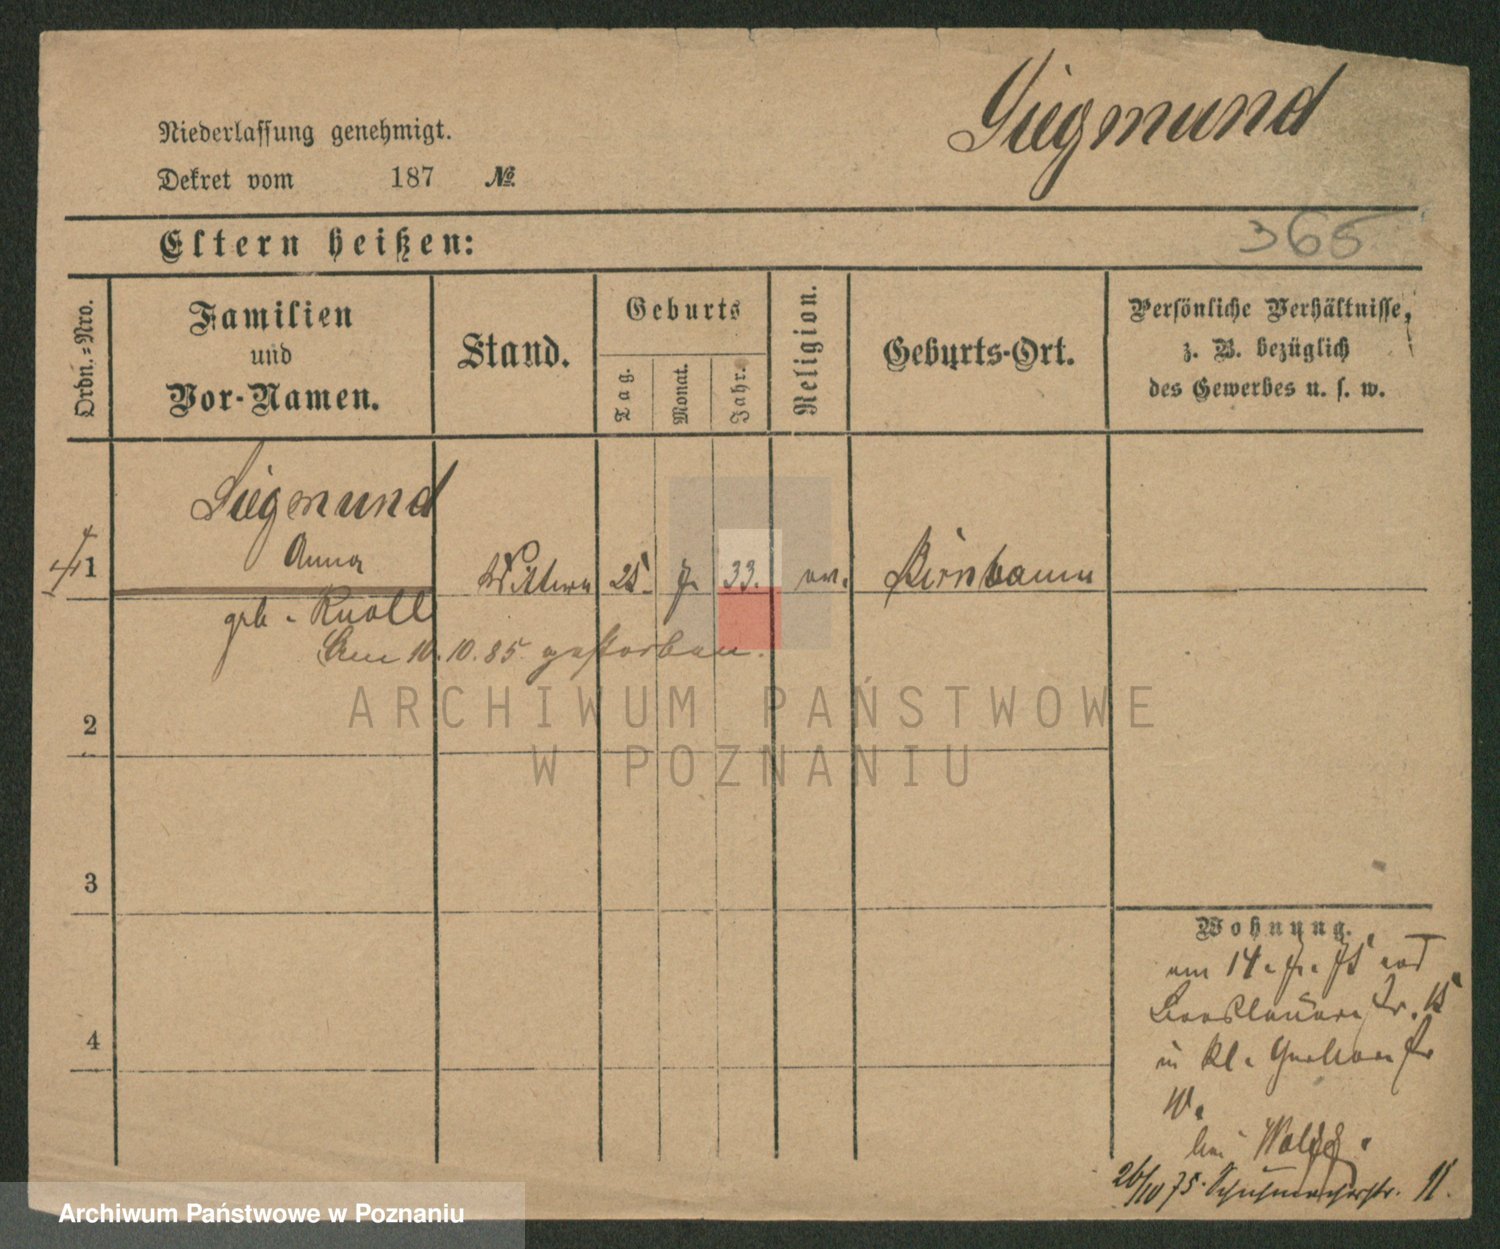 Siegmund
Niederlassung genehmigt.
Dekret vom 187 №
365
Eltern heißen:
Ordn.-Nro.
Familien
und
Vor-Namen.
Stand.
Geburts
Tag.
Monat.
Jahr.
Religion.
Geburts-Ort.
Persönliche Verhältnisse,
z. B. bezüglich
des Gewerbes u. s. w.
Siegmund
Anna
1 Wittwe 25. 7. 33. ev. Birnbaum
geb. Knoll
Am 10.10.85 gestorben.
2
3
4
Wohnung.
am 14. 7. 75 aus
Breslauerstr. 15
in kl.
10.
bei
26/10 75. Schuhmacherstr. 11.
ARCHIWUM PAŃSTWOWE
W POZNANIU
Archiwum Państwowe w Poznaniu